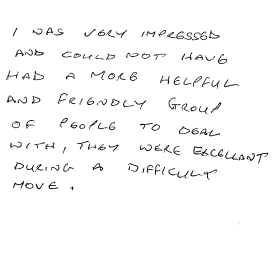 I WAS VERY IMPRESSED
AND COULD NOT HAVE
HAD A MORE HELPFUL
AND FRIENDLY GROUP
OF PEOPLE TO DEAL
WITH, THEY WERE EXCELLANT
DURING A DIFFICULT
MOVE.